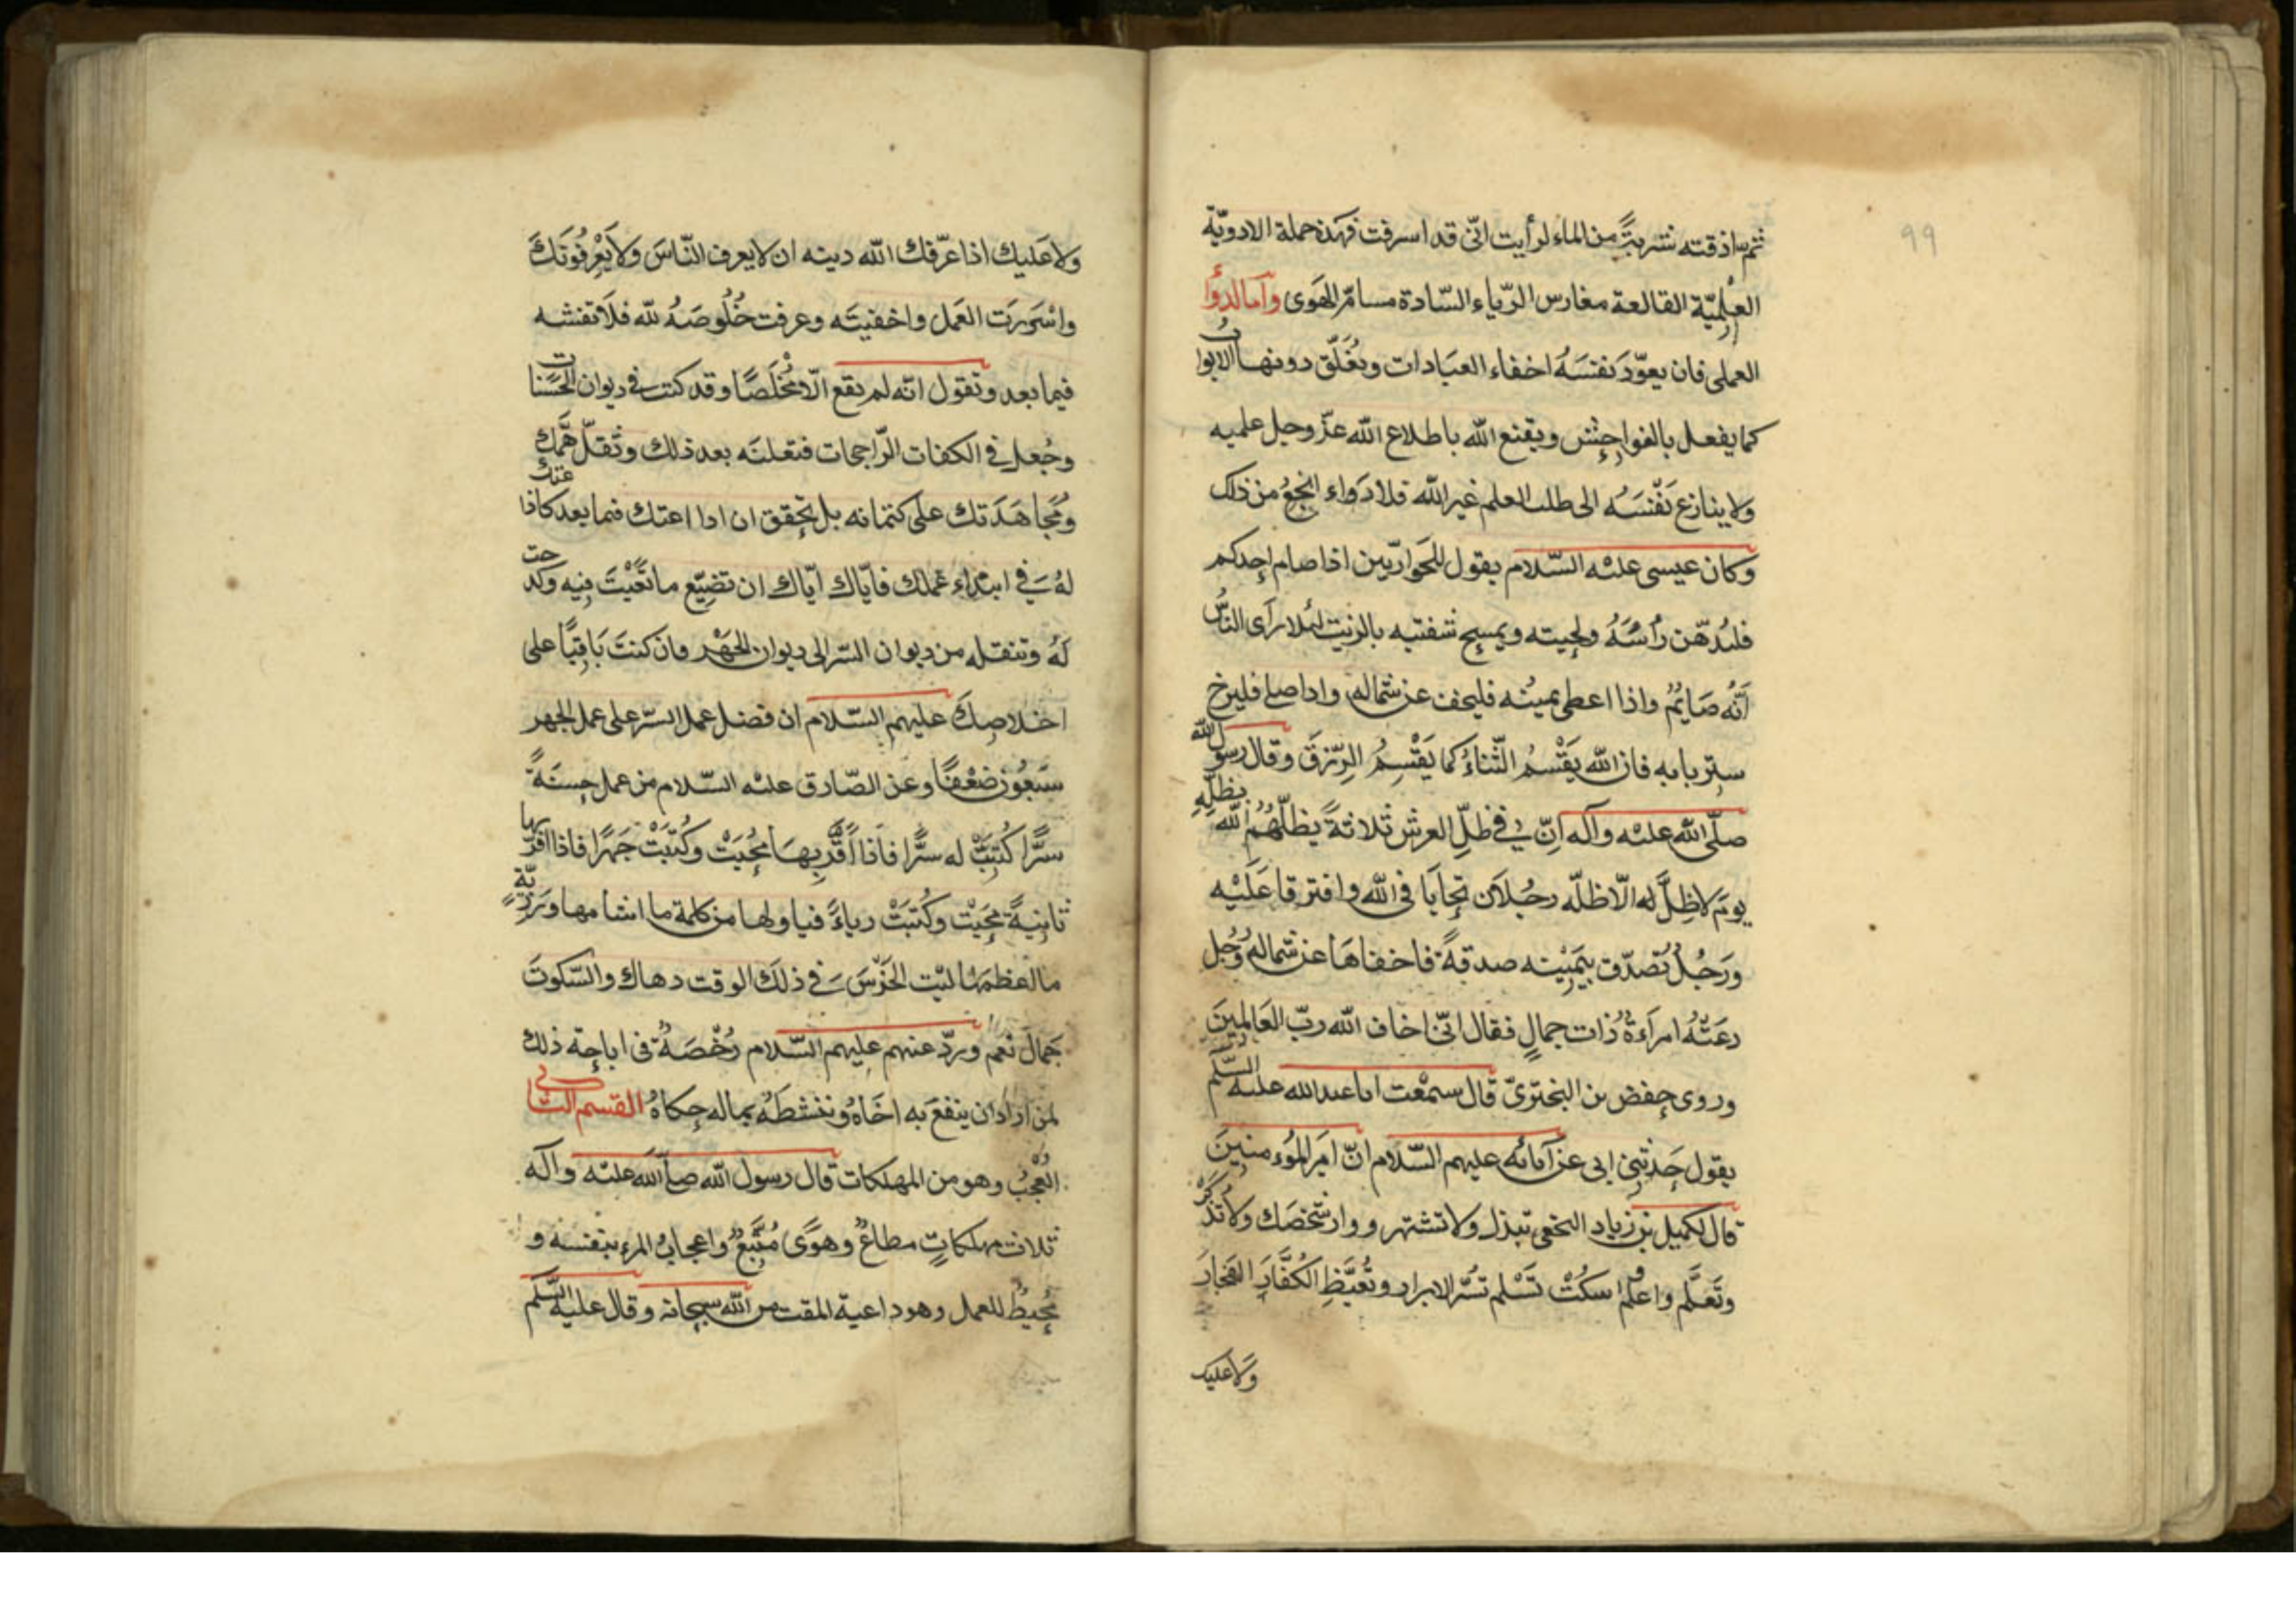 99
ثم سادقته شربةً من الماء لرأيت انّى قد اسرفت فهذه جملة الادويّة
العلميّة القالعة مغارس الرّياء السّادة مسامّ الهوى وأما الدواء
العملى فان يعوّد نفسَهُ اخفاء العبَادات وبغلّق دونها الابواب
كما يفعل بالفواحش ويقنع الله باطلاع الله عزّ وجل علميه
ولا ينازع نَفْسَهُ الى طلب العلم غير الله فلا دَواء انجعُ من ذلك
وكان عيسى عليْه السّلام يقول للحَواريّين اذا صام احدكم
فليُدهّن رأسَهُ ولحيته ويمسح شفتيه بالزيت لئلا يرَاى النّاسُ
أنّه صَايُمٌ واذا اعطى بميْنه فليخف عن شماله واذا صلى فليرخ
ستر بابه فان الله يَقْسْمُ الثّناءُ كما يَقْسِمُ الرِّزقَ وقال رسول الله
صلّى الله عليْه وآله اِنّ في ظلِّ العرش ثلاثةً يظلّهُمُ الله بظلِّهِ
يومَ لا ظِلَّ له الّا ظلّه رجُلان تحابَا فى الله وافترقا عَلَيْه
ورَجُلٌ تصدّق بيَميْنه صدقةً فاخفاهَا عن شماله ورُجل
دعَتْهُ امرأةٌ ذات جمالٍ فقال انّى اخاف الله ربّ العَالمينَ
وروى حفص بن البخترىّ قال سمعْت ابا عبد الله عليْه السّلم
يقول حَدثنى ابى عن آبائه عليهم السّلام انّ امَيرَ المؤمنينَ
قال لكميل بن زياد النخعى تبذل ولا تشتهر ووارِ شخصَك ولا تذكرْ
وتَعلَّم واعلم واسكُتْ تَسْلم تسُرّ الابرار وتُغيَّظِ الكُفّارَ الفجارَ
وَلا عليك
ولا عَليك اذا عرّفك الله دينه ان لا يعرف النّاسَ ولا يَعْرفُونَكَ
واسْررَت العَمل واخفيتَه وعرفت خُلُوصَهُ لله فلا تفشه
فيما بعد وتقول انّه لم يقع الّا مُخْلَصًا وقد كتب فى ديوان الحسَنات
وجُعل فى الكفات الرّاجحات فتعلنَه بعد ذلك وتقلّ همّك
ومُجاهَدَتك على كتمانه بل تحقق ان اذاعتك فيما بعد كاذاعتك
لهُ فى ابتداء عَملك فايّاك ايّاك ان تضيّع ما تعَّبْتَ فيه وكدحت
لَهُ وتنقله من ديوان السّر الى ديوان الجهْر وان كنتَ بَاقيًا على
اخلاصِكَ عليهم السّلام ان فضل عمل السّر على عمل الجهر
سبْعُون ضعْفًا وعن الصّادق عليْه السّلام من عمل حسنَةً
سرًّا كُتِبَتْ له سرًّا فاذا اَقرّ بهَا مُحُيَتْ وكُتبَتْ جَهرًا فاذا اقرّ بها
ثانِيةً مُحيَتْ وكُتبَتْ رياءً فيا ولها من كلمة ما اشامها ورَزيّةٍ
ما اعظمهَا ليْت الخَرْسَ فى ذلَك الوقت دهاك والسّكوتَ
جَمالَ نعم وردّ عنهم عليهم السّلام رُخْصَةٌ فى اباحة ذلك
لمن اراد ان ينفعَ به اخَاهُ وننشطهُ بماله حكاهُ القسم الثانى
العُجْبُ وهو من المهلكات قال رسول الله صلّى الله عليْه وآله
ثلاث مهلكاتٍ مطاعٌ وهوًى مُتّبَعٌ واعجابُ المرء بنفسه و
مُحيطٌ للعمل وهو داعية المقت من الله سبحانه وقال عليْه السّلم